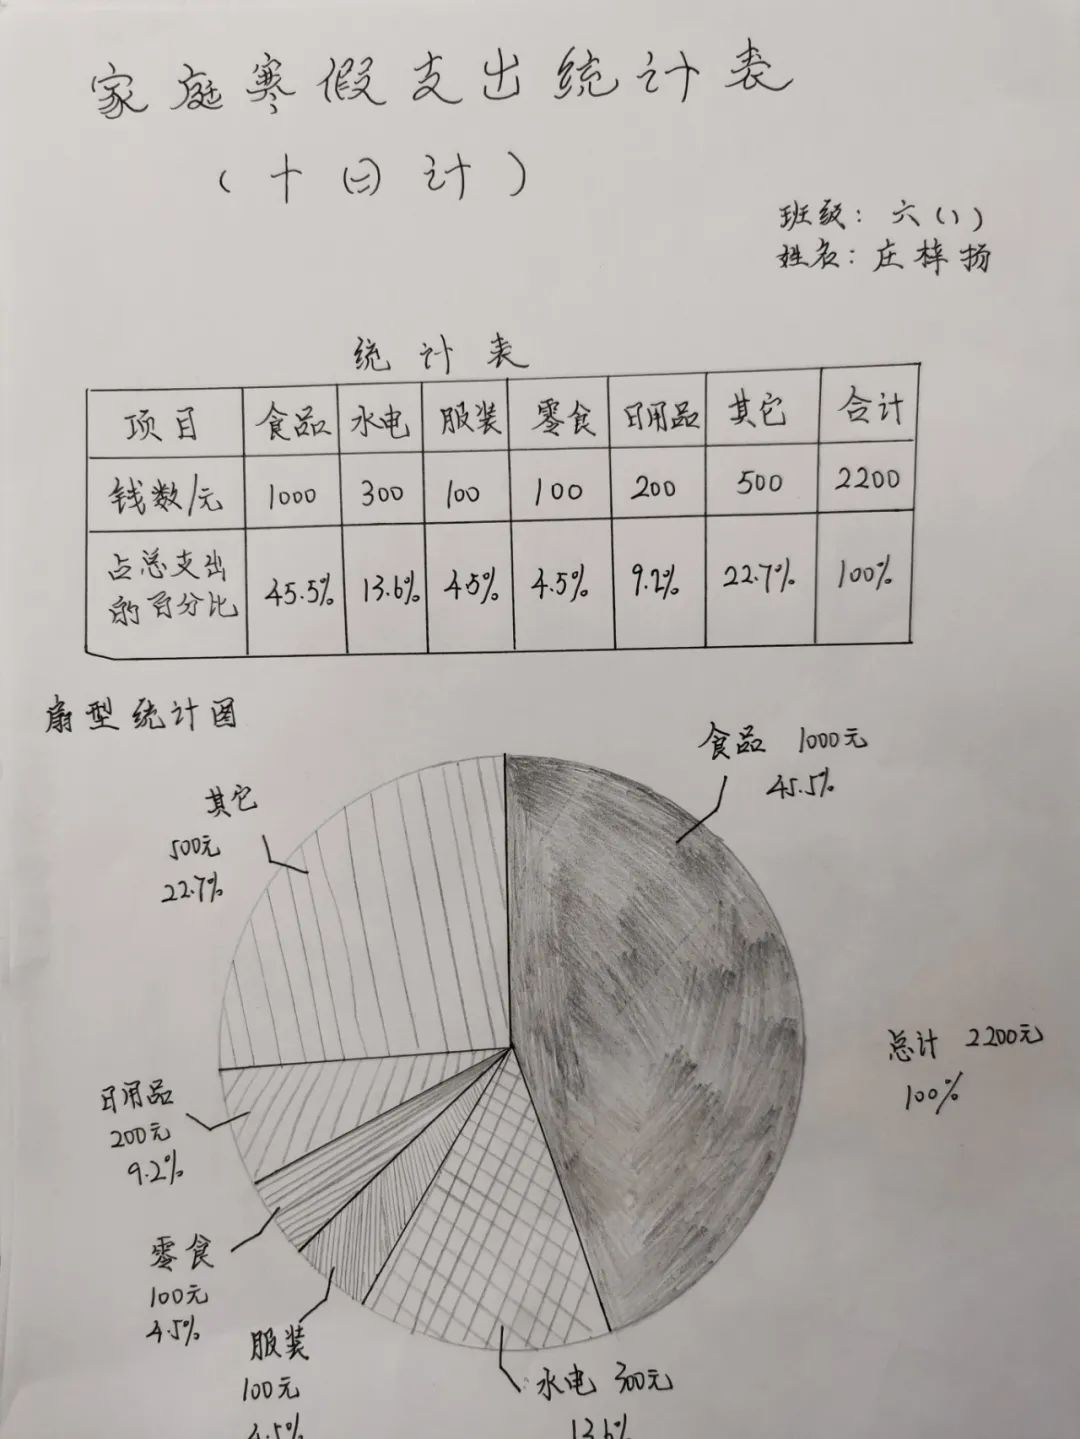 家庭寒假支出统计表
（十日计）
班级：六（1）
姓名：庄梓扬
统计表
项目 食品 水电 服装 零食 日用品 其它 合计
钱数/元 1000 300 100 100 200 500 2200
占总支出
的百分比 45.5% 13.6% 4.5% 4.5% 9.2% 22.7% 100%
扇型统计图
食品 1000元
45.5%
其它
500元
22.7%
总计 2200元
100%
日用品
200元
9.2%
零食
100元
4.5%
服装
100元
4.5%
水电 300元
13.6%